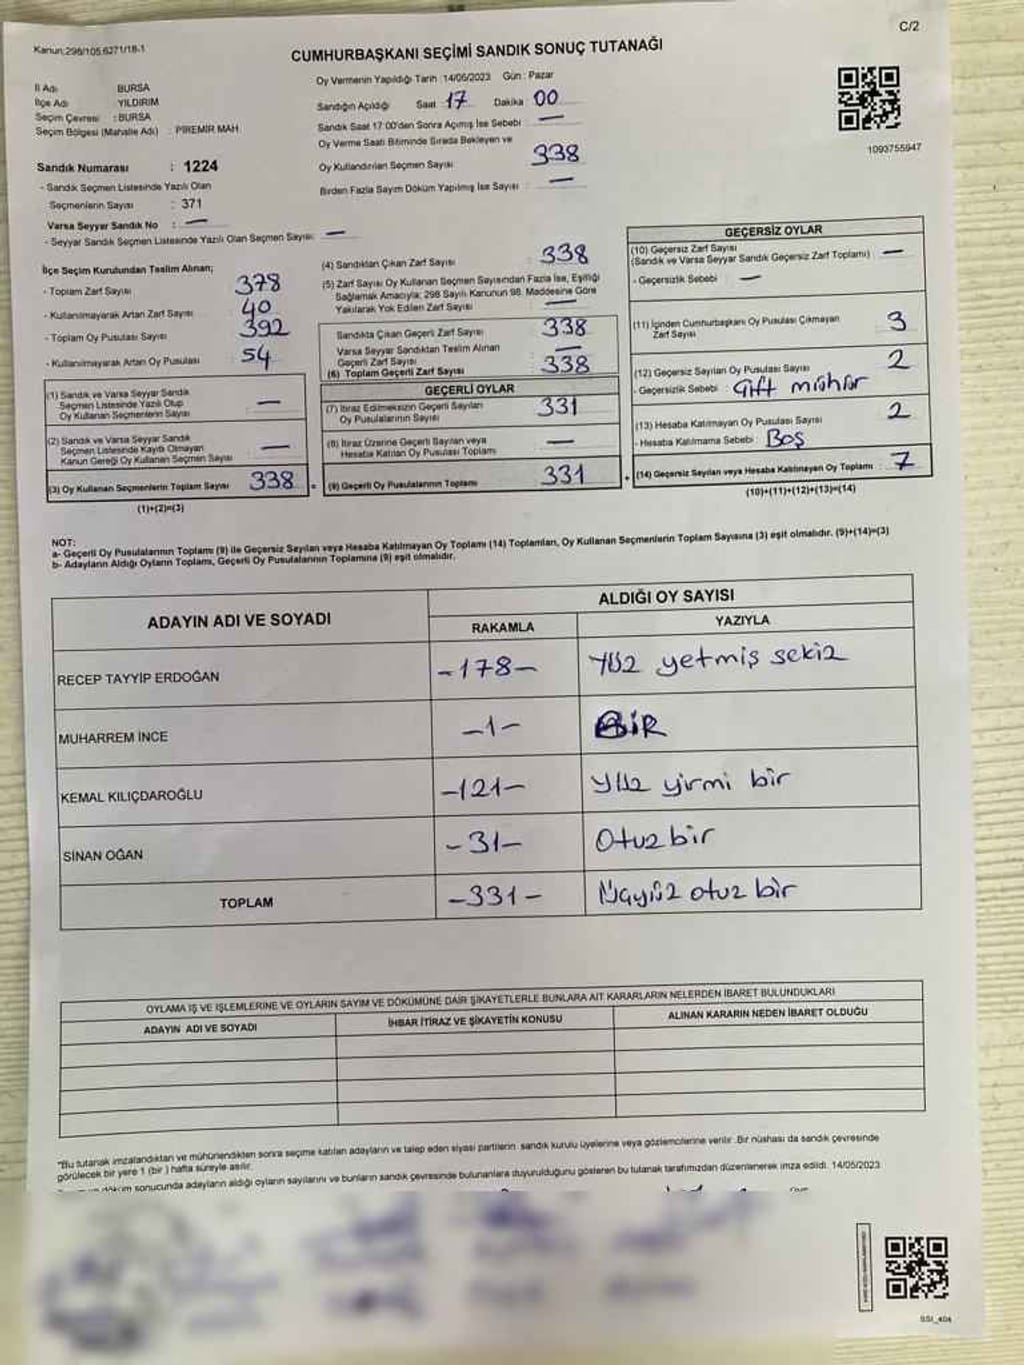 Kanun:298/105.6271/18-1
C/2
CUMHURBAŞKANI SEÇİMİ SANDIK SONUÇ TUTANAĞI
İl Adı BURSA
İlçe Adı YILDIRIM
Seçim Çevresi : BURSA
Seçim Bölgesi (Mahalle Adı) : PİREMİR MAH.
Oy Vermenin Yapıldığı Tarih :14/05/2023 Gün : Pazar
Sandığın Açıldığı Saat 17 Dakika 00
Sandık Saat 17:00'den Sonra Açımış İse Sebebi —
Oy Verme Saati Bitiminde Sırada Bekleyen ve
Oy Kullandırılan Seçmen Sayısı 338
Birden Fazla Sayım Döküm Yapılmış İse Sayısı —
1093755947
Sandık Numarası : 1224
- Sandık Seçmen Listesinde Yazılı Olan
Seçmenlerin Sayısı : 371
Varsa Seyyar Sandık No : —
- Seyyar Sandık Seçmen Listesinde Yazılı Olan Seçmen Sayısı: —
İlçe Seçim Kurulundan Teslim Alınan;
- Toplam Zarf Sayısı 378
- Kullanılmayarak Artan Zarf Sayısı 40
- Toplam Oy Pusulası Sayısı 392
- Kullanılmayarak Artan Oy Pusulası 54
(1) Sandık ve Varsa Seyyar Sandık
Seçmen Listesinde Yazılı Olup
Oy Kullanan Seçmenlerin Sayısı —
(2) Sandık ve Varsa Seyyar Sandık
Seçmen Listesinde Kayıtlı Olmayan
Kanun Gereği Oy Kullanan Seçmen Sayısı —
(3) Oy Kullanan Seçmenlerin Toplam Sayısı 338 =
(1)+(2)=(3)
(4) Sandıktan Çıkan Zarf Sayısı 338
(5) Zarf Sayısı Oy Kullanan Seçmen Sayısından Fazla İse, Eşitliği
Sağlamak Amacıyla; 298 Sayılı Kanunun 98. Maddesine Göre
Yakılarak Yok Edilen Zarf Sayısı —
Sandıkta Çıkan Geçerli Zarf Sayısı 338
Varsa Seyyar Sandıktan Teslim Alınan
Geçerli Zarf Sayısı —
(6) Toplam Geçerli Zarf Sayısı 338
GEÇERLİ OYLAR
(7) İtiraz Edilmeksizin Geçerli Sayılan
Oy Pusulalarının Sayısı 331
(8) İtiraz Üzerine Geçerli Sayılan veya
Hesaba Katılan Oy Pusulası Toplamı —
(9) Geçerli Oy Pusulalarının Toplamı 331 +
GEÇERSİZ OYLAR
(10) Geçersiz Zarf Sayısı
(Sandık ve Varsa Seyyar Sandık Geçersiz Zarf Toplamı) —
- Geçersizlik Sebebi —
(11) İçinden Cumhurbaşkanı Oy Pusulası Çıkmayan
Zarf Sayısı 3
(12) Geçersiz Sayılan Oy Pusulası Sayısı 2
- Geçersizlik Sebebi : Çift mühür
(13) Hesaba Katılmayan Oy Pusulası Sayısı 2
- Hesaba Katılmama Sebebi : Boş
(14) Geçersiz Sayılan veya Hesaba Katılmayan Oy Toplamı : 7
(10)+(11)+(12)+(13)=(14)
NOT:
a- Geçerli Oy Pusulalarının Toplamı (9) ile Geçersiz Sayılan veya Hesaba Katılmayan Oy Toplamı (14) Toplamları, Oy Kullanan Seçmenlerin Toplam Sayısına (3) eşit olmalıdır. (9)+(14)=(3)
b- Adayların Aldığı Oyların Toplamı, Geçerli Oy Pusulalarının Toplamına (9) eşit olmalıdır.
ADAYIN ADI VE SOYADI
ALDIĞI OY SAYISI
RAKAMLA YAZIYLA
RECEP TAYYİP ERDOĞAN -178- Yüz yetmiş sekiz
MUHARREM İNCE -1- BİR
KEMAL KILIÇDAROĞLU -121- Yüz yirmi bir
SİNAN OĞAN -31- Otuz bir
TOPLAM -331- Üçyüz otuz bir
OYLAMA İŞ VE İŞLEMLERİNE VE OYLARIN SAYIM VE DÖKÜMÜNE DAİR ŞİKAYETLERLE BUNLARA AİT KARARLARIN NELERDEN İBARET BULUNDUKLARI
ADAYIN ADI VE SOYADI İHBAR İTİRAZ VE ŞİKAYETİN KONUSU ALINAN KARARIN NEDEN İBARET OLDUĞU
"Bu tutanak imzalandıktan ve mühürlendikten sonra seçime katılan adayların ve talep eden siyasi partilerin sandık kurulu üyelerine veya gözlemcilerine verilir. Bir nüshası da sandık çevresinde
görülecek bir yere 1 (bir) hafta süreyle asılır.
döküm sonucunda adayların aldığı oyların sayılarını ve bunların sandık çevresinde bulunanlara duyurulduğunu gösteren bu tutanak tarafımızdan düzenlenerek imza edildi. 14/05/2023
SSI_404